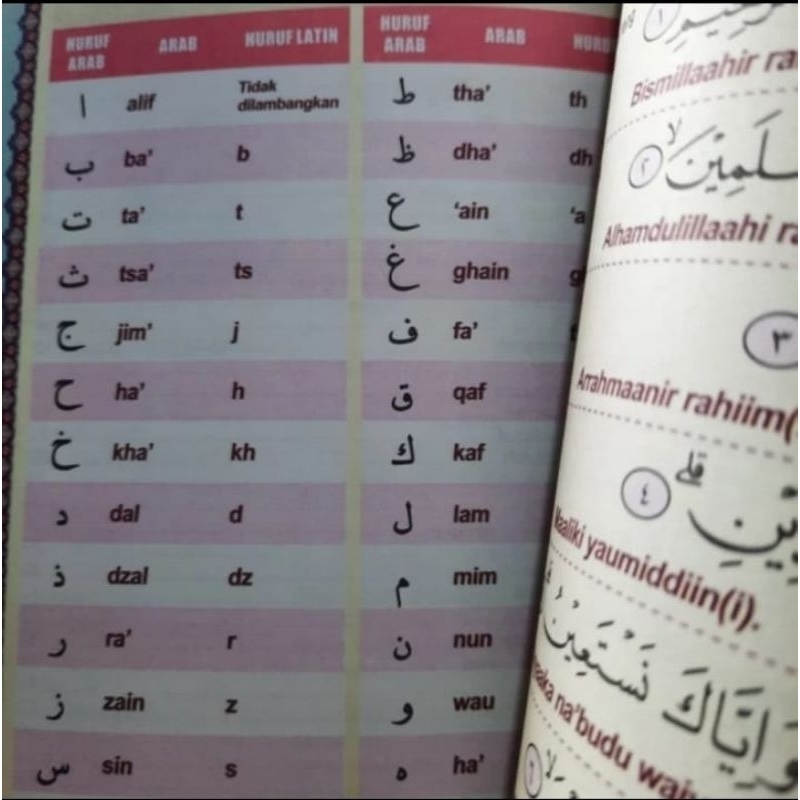 HURUF ARAB ARAB HURUF LATIN
ا alif Tidak dilambangkan
ب ba' b
ت ta' t
ث tsa' ts
ج jim' j
ح ha' h
خ kha' kh
د dal d
ذ dzal dz
ر ra' r
ز zain z
س sin s
HURUF ARAB ARAB
ط tha' th
ظ dha' dh
ع 'ain 'a
غ ghain
ف fa'
ق qaf
ك kaf
ل lam
م mim
ن nun
و wau
ه ha'
١
Bismillaahir
٢
Alhamdulillaahi
٣
Arrahmaanir rahiim(
٤
Maaliki yaumiddiin(i).
وَ اِيَّاكَ نَسْتَعِيْنُ
na'budu